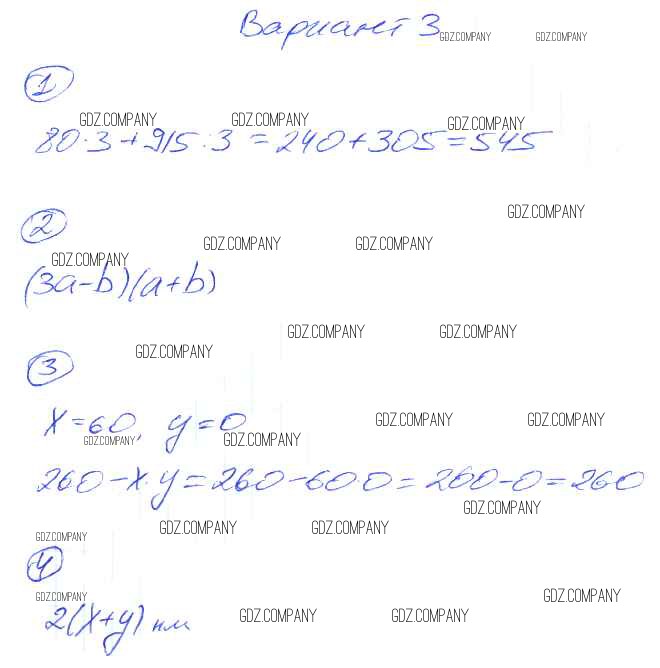 Вариант 3
GDZ.COMPANY GDZ.COMPANY
1
GDZ.COMPANY GDZ.COMPANY GDZ.COMPANY
80·3+915:3=240+305=545
GDZ.COMPANY
2
GDZ.COMPANY GDZ.COMPANY
GDZ.COMPANY
(3a-b)(a+b)
GDZ.COMPANY GDZ.COMPANY
GDZ.COMPANY
3
x=60, y=0
GDZ.COMPANY GDZ.COMPANY
GDZ.COMPANY GDZ.COMPANY
260-x·y=260-60·0=260-0=260
GDZ.COMPANY
GDZ.COMPANY GDZ.COMPANY
GDZ.COMPANY
4
GDZ.COMPANY GDZ.COMPANY
2(x+y)
GDZ.COMPANY GDZ.COMPANY